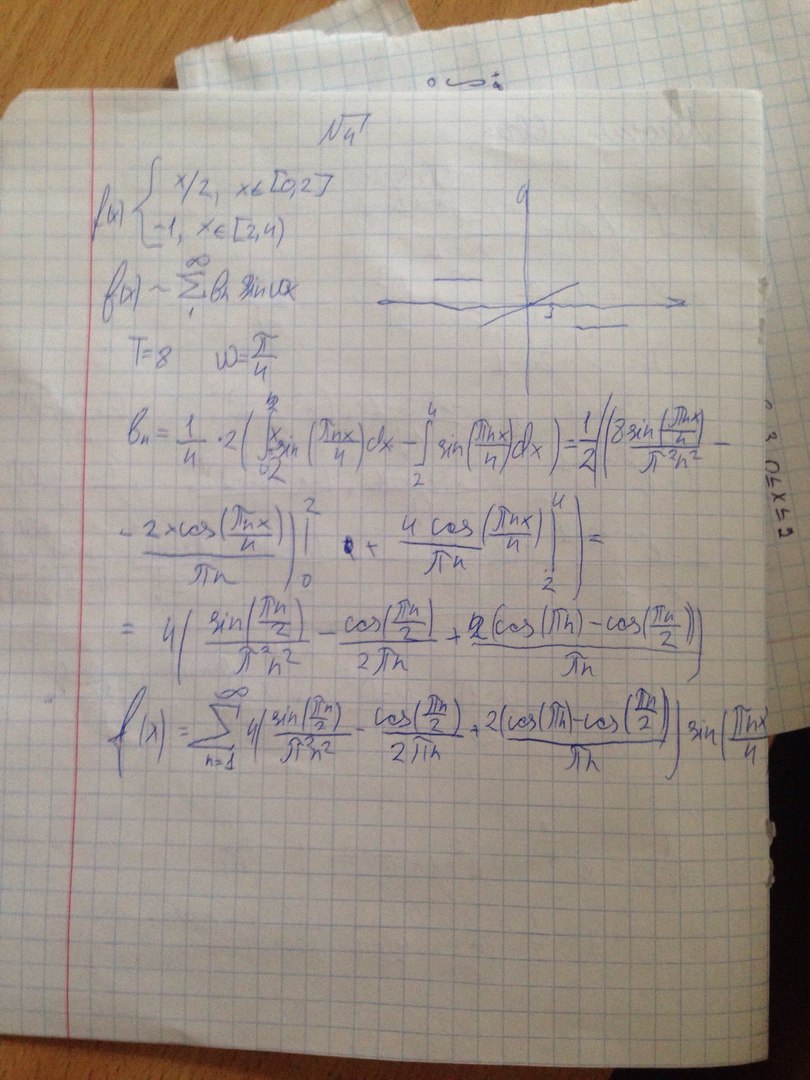 №4
f(x) { x/2, x∈[0,2]
-1, x∈[2,4)
f(x) ~ ∑₁^∞ bn sin ωx
T=8 ω=π/4
bn = 1/4 · 2 ( ∫₀² x/2 sin(πnx/4) dx - ∫₂⁴ sin(πnx/4) dx ) = 1/2 ( ( 8 sin(πnx/4) / π²n² -
- 2x cos(πnx/4) / πn ) |₀² + 4 cos(πnx/4) / πn |₂⁴ ) =
= 4 ( sin(πn/2) / π²n² - cos(πn/2) / 2πn + 2(cos(πn) - cos(πn/2)) / πn )
f(x) = ∑ₙ₌₁^∞ 4 ( sin(πn/2) / π²n² - cos(πn/2) / 2πn + 2(cos(πn) - cos(πn/2)) / πn ) sin(πnx/4